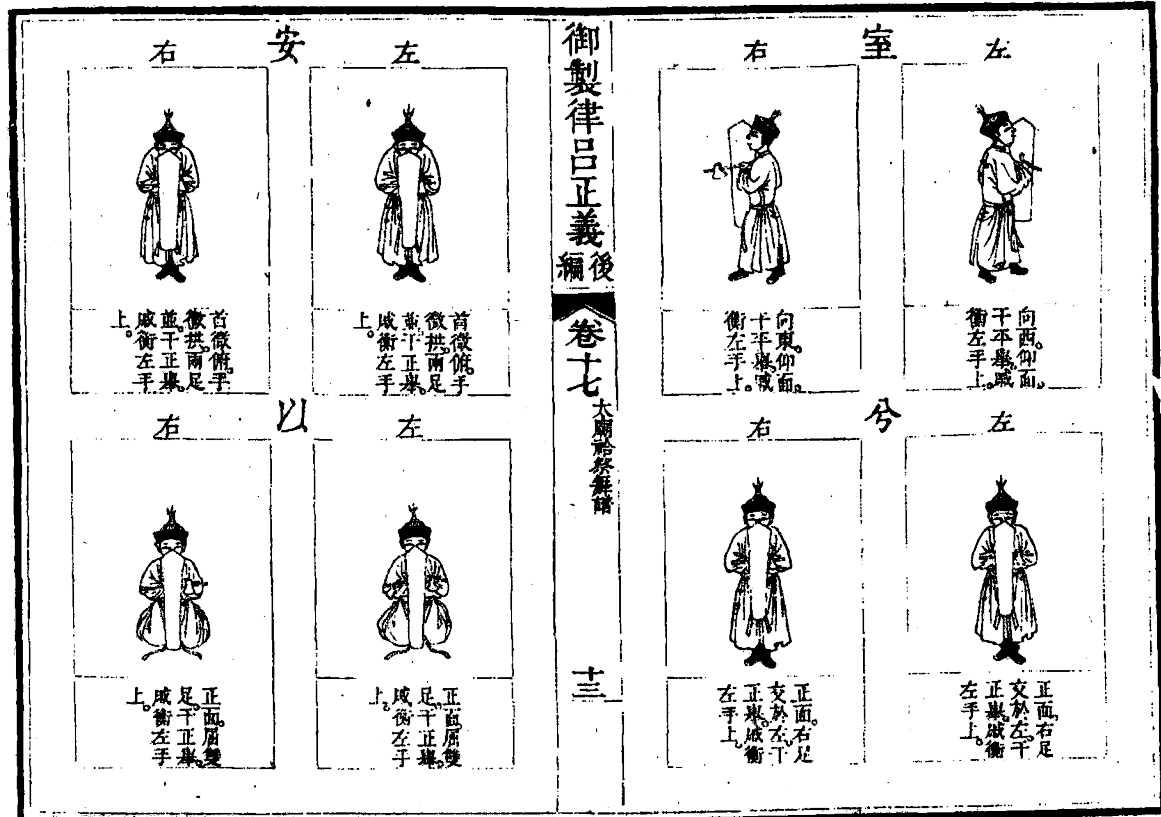 室
左
向西。仰面。
干平舉。戚
衡左手上。
右
向東。仰面。
干平舉。戚
衡左手上。
兮
左
正面。右足
交於左。干
正舉。戚衡
左手上。
右
正面。右足
交於左。干
正舉。戚衡
左手上。
御製律呂正義後編
卷十七
太廟祫祭舞譜
十三
安
左
首微俯。手
微拱。兩足
並。干正舉。
戚衡左手
上。
右
首微俯。手
微拱。兩足
並。干正舉。
戚衡左手
上。
以
左
正面。屈雙
足。干正舉。
戚衡左手
上。
右
正面。屈雙
足。干正舉。
戚衡左手
上。